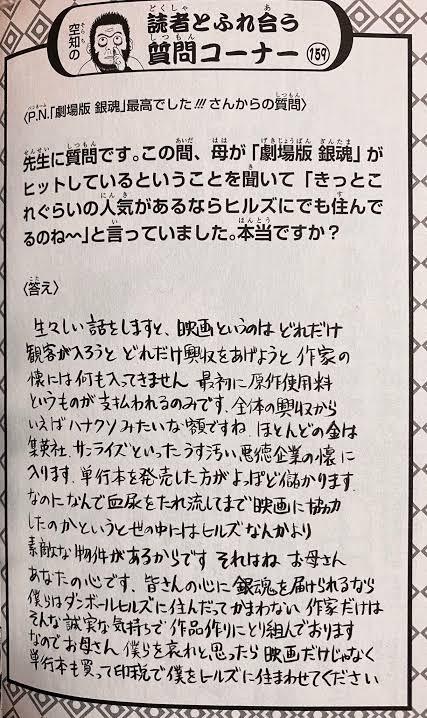 空知の
読者とふれ合う
質問コーナー 159
〈P.N.「劇場版 銀魂」最高でした!!!さんからの質問〉
先生に質問です。この間、母が「劇場版 銀魂」が
ヒットしているということを聞いて「きっとこ
れぐらいの人気があるならヒルズにでも住んで
るのね〜〜」と言っていました。本当ですか?
〈答え〉
生々しい話をしますと、映画というのは どれだけ
観客が入ろうと どれだけ興収をあげようと 作家の
懐には何も入ってきません 最初に原作使用料
というものが支払われるのみです。全体の興収から
いえばハナクソみたいな額ですね。ほとんどの金は
集英社、サンライズといったうす汚い悪徳企業の懐に
入ります。単行本を発売した方がよっぽど儲かります。
なのになんで血尿をたれ流してまで映画に協力
したのかというと世の中にはヒルズなんかより
素敵な物件があるからです それはね お母さん
あなたの心です。皆さんの心に 銀魂を届けられるなら
僕らはダンボールヒルズに住んだってかまわない 作家だけは
そんな誠実な気持ちで作品作りにとり組んでおります
なのでお母さん 僕らを哀れと思ったら 映画だけじゃなく
単行本も買って印税で僕をヒルズに住まわせてください